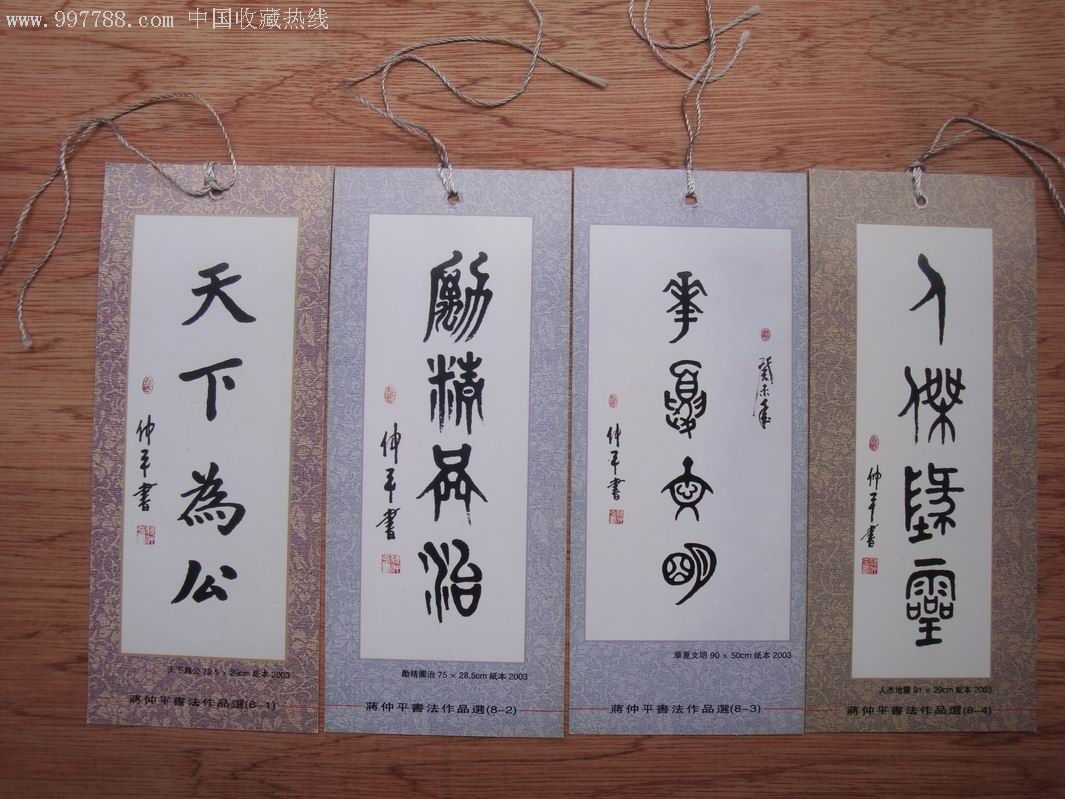 www.997788.com 中国收藏热线
天下為公
仲平書
天下爲公 79.5 × 29cm 紙本 2003
蔣仲平書法作品選(8-1)
勵精圖治
仲平書
勵精圖治 75 × 28.5cm 紙本 2003
蔣仲平書法作品選(8-2)
癸未
華夏文明
仲平書
華夏文明 90 × 50cm 紙本 2003
蔣仲平書法作品選(8-3)
人傑地靈
仲平書
人杰地靈 91 × 29cm 紙本 2003
蔣仲平書法作品選(8-4)